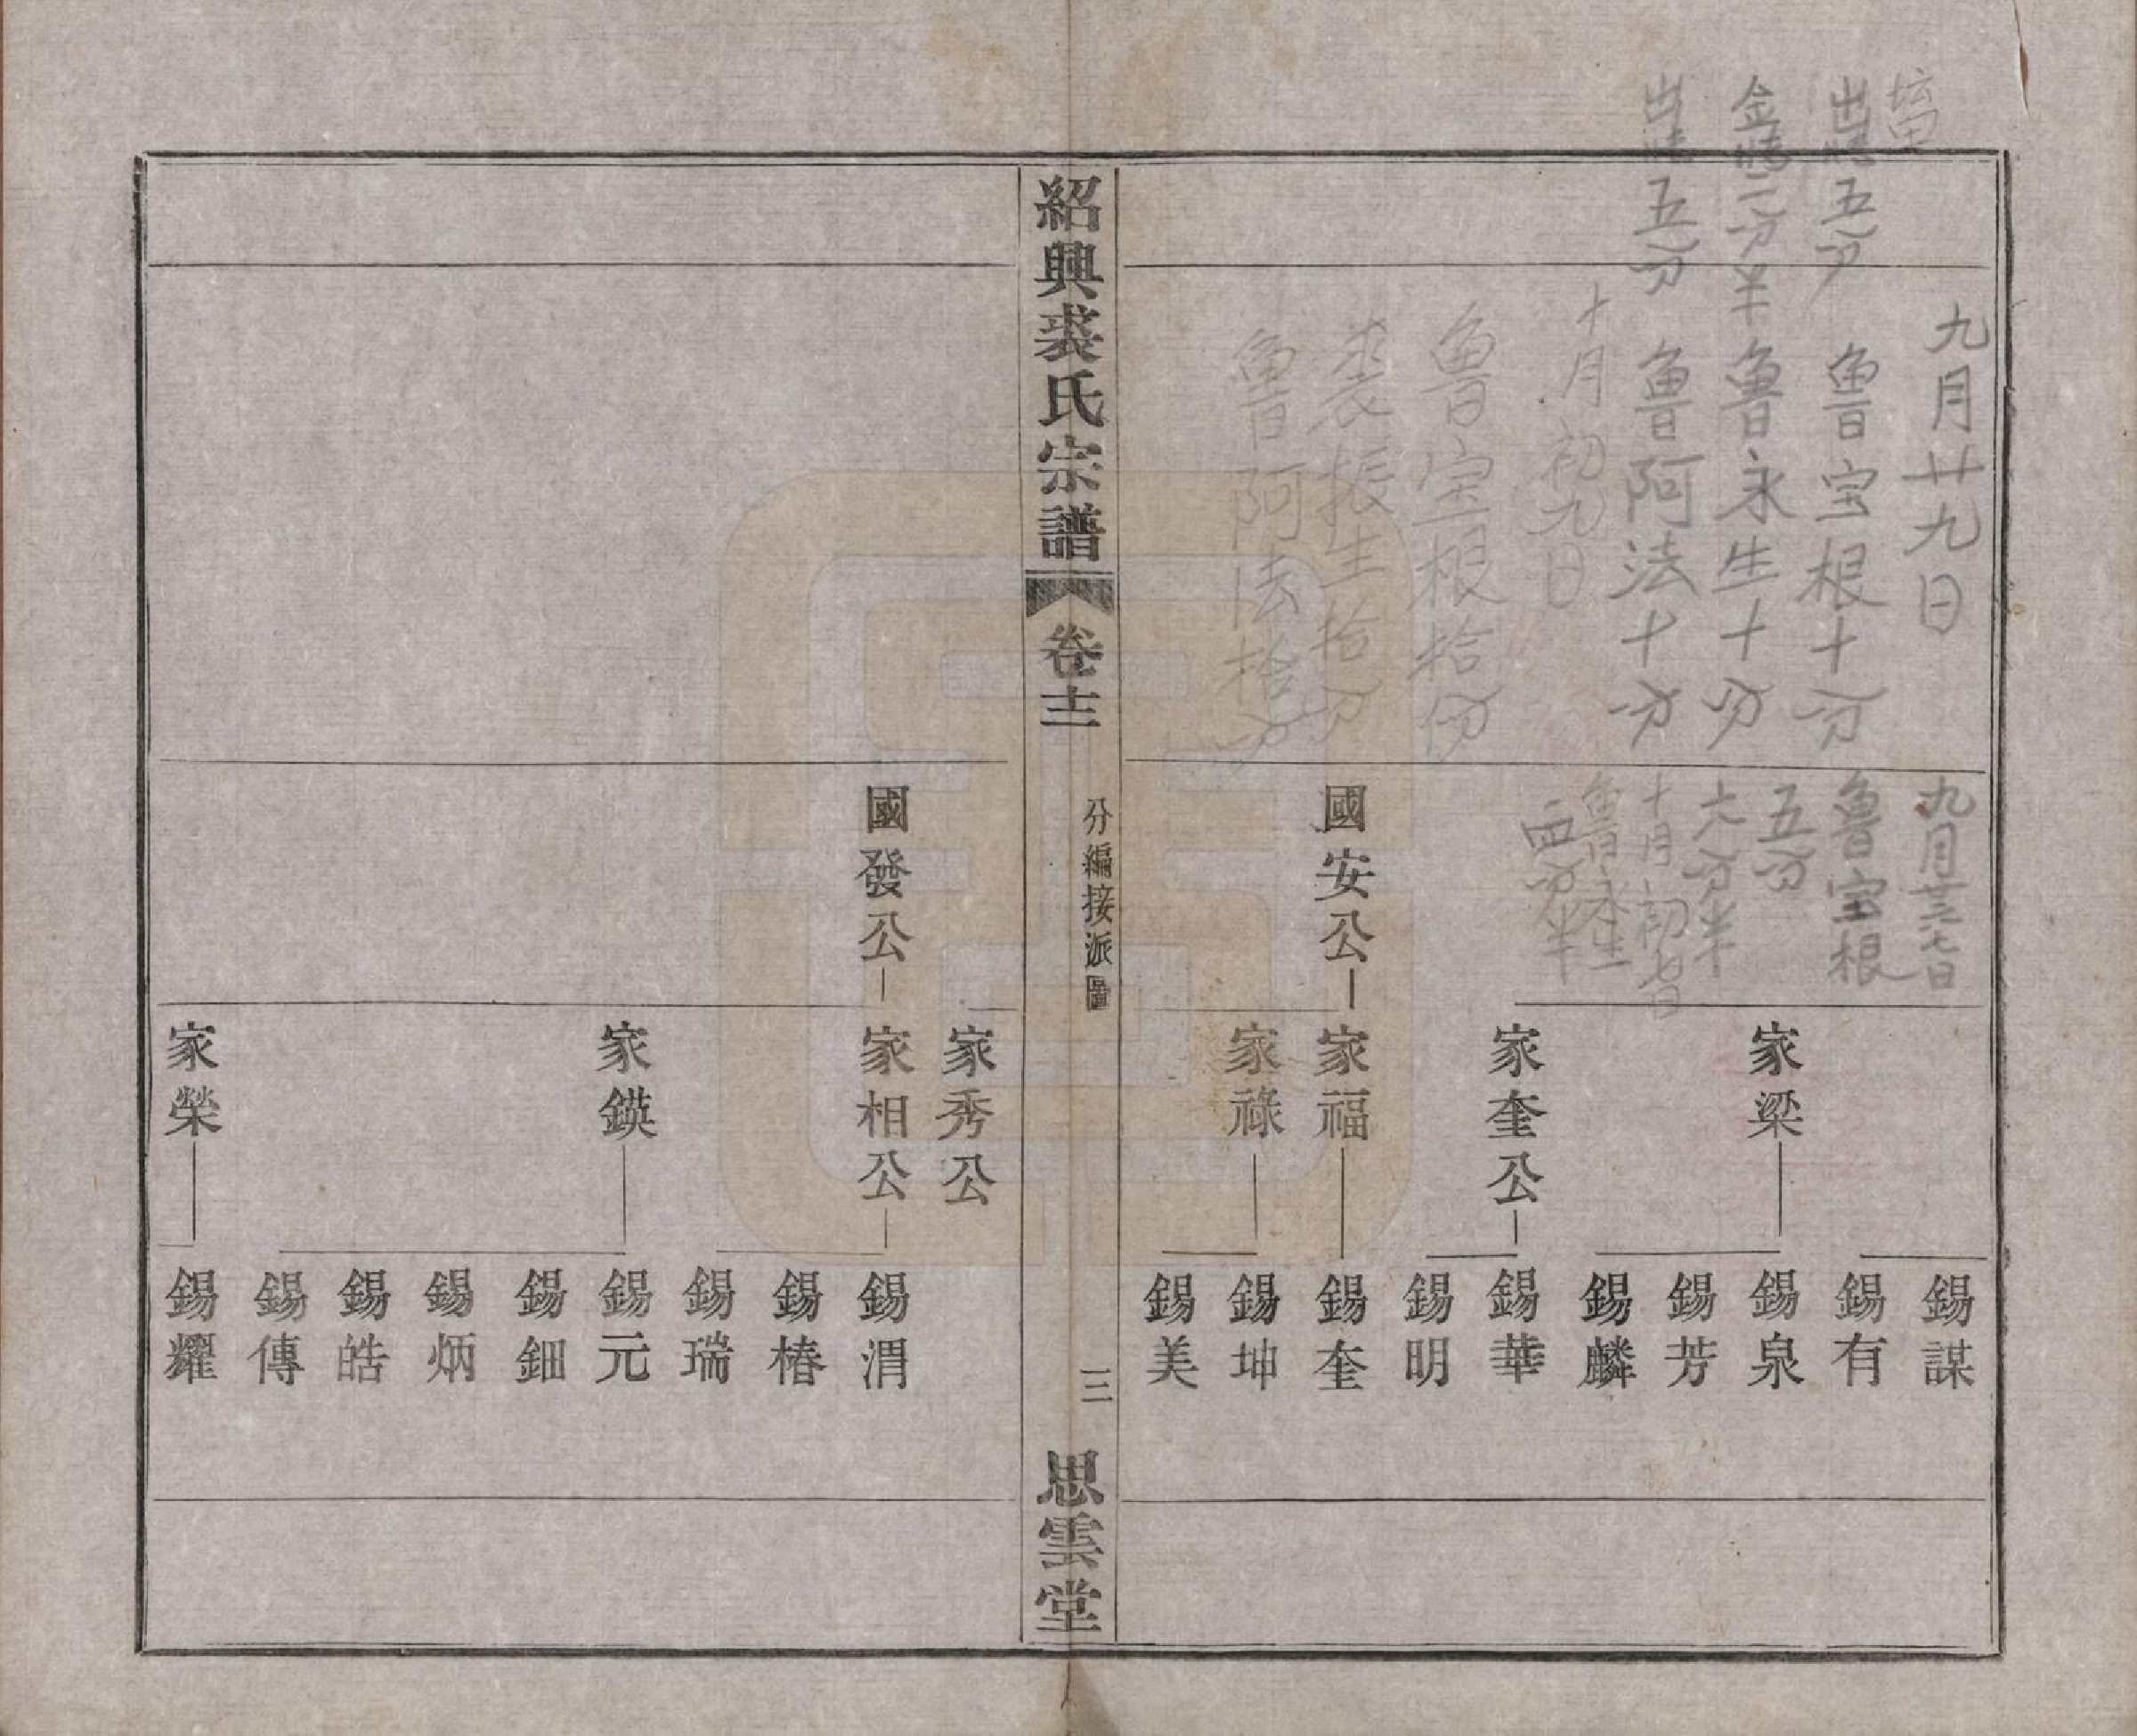 九月廿九日
魯宝根十分
五分
魯永生十分
二分半
魯阿法十分
五分
十月初九日
魯宝根拾份
裘振生拾分
魯阿法拾分
魯宝根
五分
六分半
十月初七日
魯永生
四分半
國安公
家梁
家奎公
家福
家祿
錫謀
錫有
錫泉
錫芳
錫麟
錫華
錫明
錫奎
錫坤
錫美
紹興裘氏宗譜
卷十二
分編接派圖
三
思雲堂
國發公
家秀公
家相公
家鍈
家榮
錫渭
錫椿
錫瑞
錫元
錫鈿
錫炳
錫皓
錫傳
錫耀